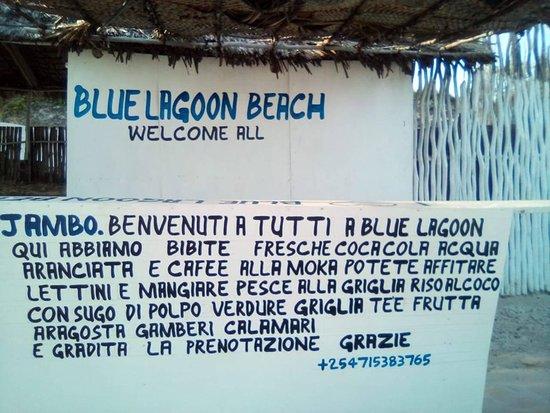 BLUE LAGOON BEACH
WELCOME ALL
JAMBO. BENVENUTI A TUTTI A BLUE LAGOON
QUI ABBIAMO BIBITE FRESCHE COCA COLA ACQUA
ARANCIATA E CAFEE ALLA MOKA POTETE AFFITARE
LETTINI E MANGIARE PESCE ALLA GRIGLIA RISO ALCOCO
CON SUGO DI POLPO VERDURE GRIGLIA TEE FRUTTA
ARAGOSTA GAMBERI CALAMARI
E GRADITA LA PRENOTAZIONE GRAZIE
+254715383765